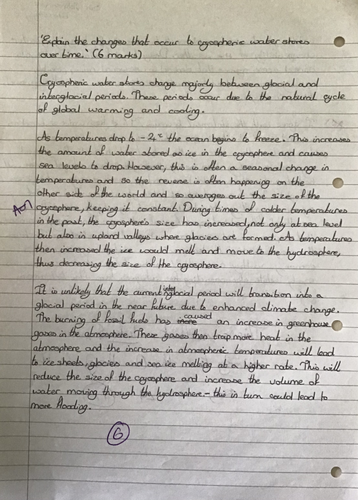 'Explain the changes that occur to cryospheric water stores
over time.' (6 marks)
Cryospheric water stores change majorly between glacial and
interglacial periods. These periods occur due to the natural cycle
of global warming and cooling.
As temperatures drop to -2°c the ocean begins to freeze. This increases
the amount of water stored as ice in the cryosphere and causes
sea levels to drop. However, this is often a seasonal change in
temperatures and so the reverse is often happening on the
other side of the world and so averages out the size of the
cryosphere, keeping it constant. During times of colder temperatures
in the past, the cryosphere's size has increased, not only at sea level
but also in upland valleys where glaciers are formed. As temperatures
then increased the ice would melt and move to the hydrosphere,
thus decreasing the size of the cryosphere.
It is unlikely that the current interglacial period will transition into a
glacial period in the near future due to enhanced climate change.
The burning of fossil fuels has caused an increase in greenhouse
gases in the atmosphere. These gases then trap more heat in the
atmosphere and the increase in atmospheric temperatures will lead
to ice sheets, glaciers and sea ice melting at a higher rate. This will
reduce the size of the cryosphere and increase the volume of
water moving through the hydrosphere - this in turn could lead to
more flooding.
6